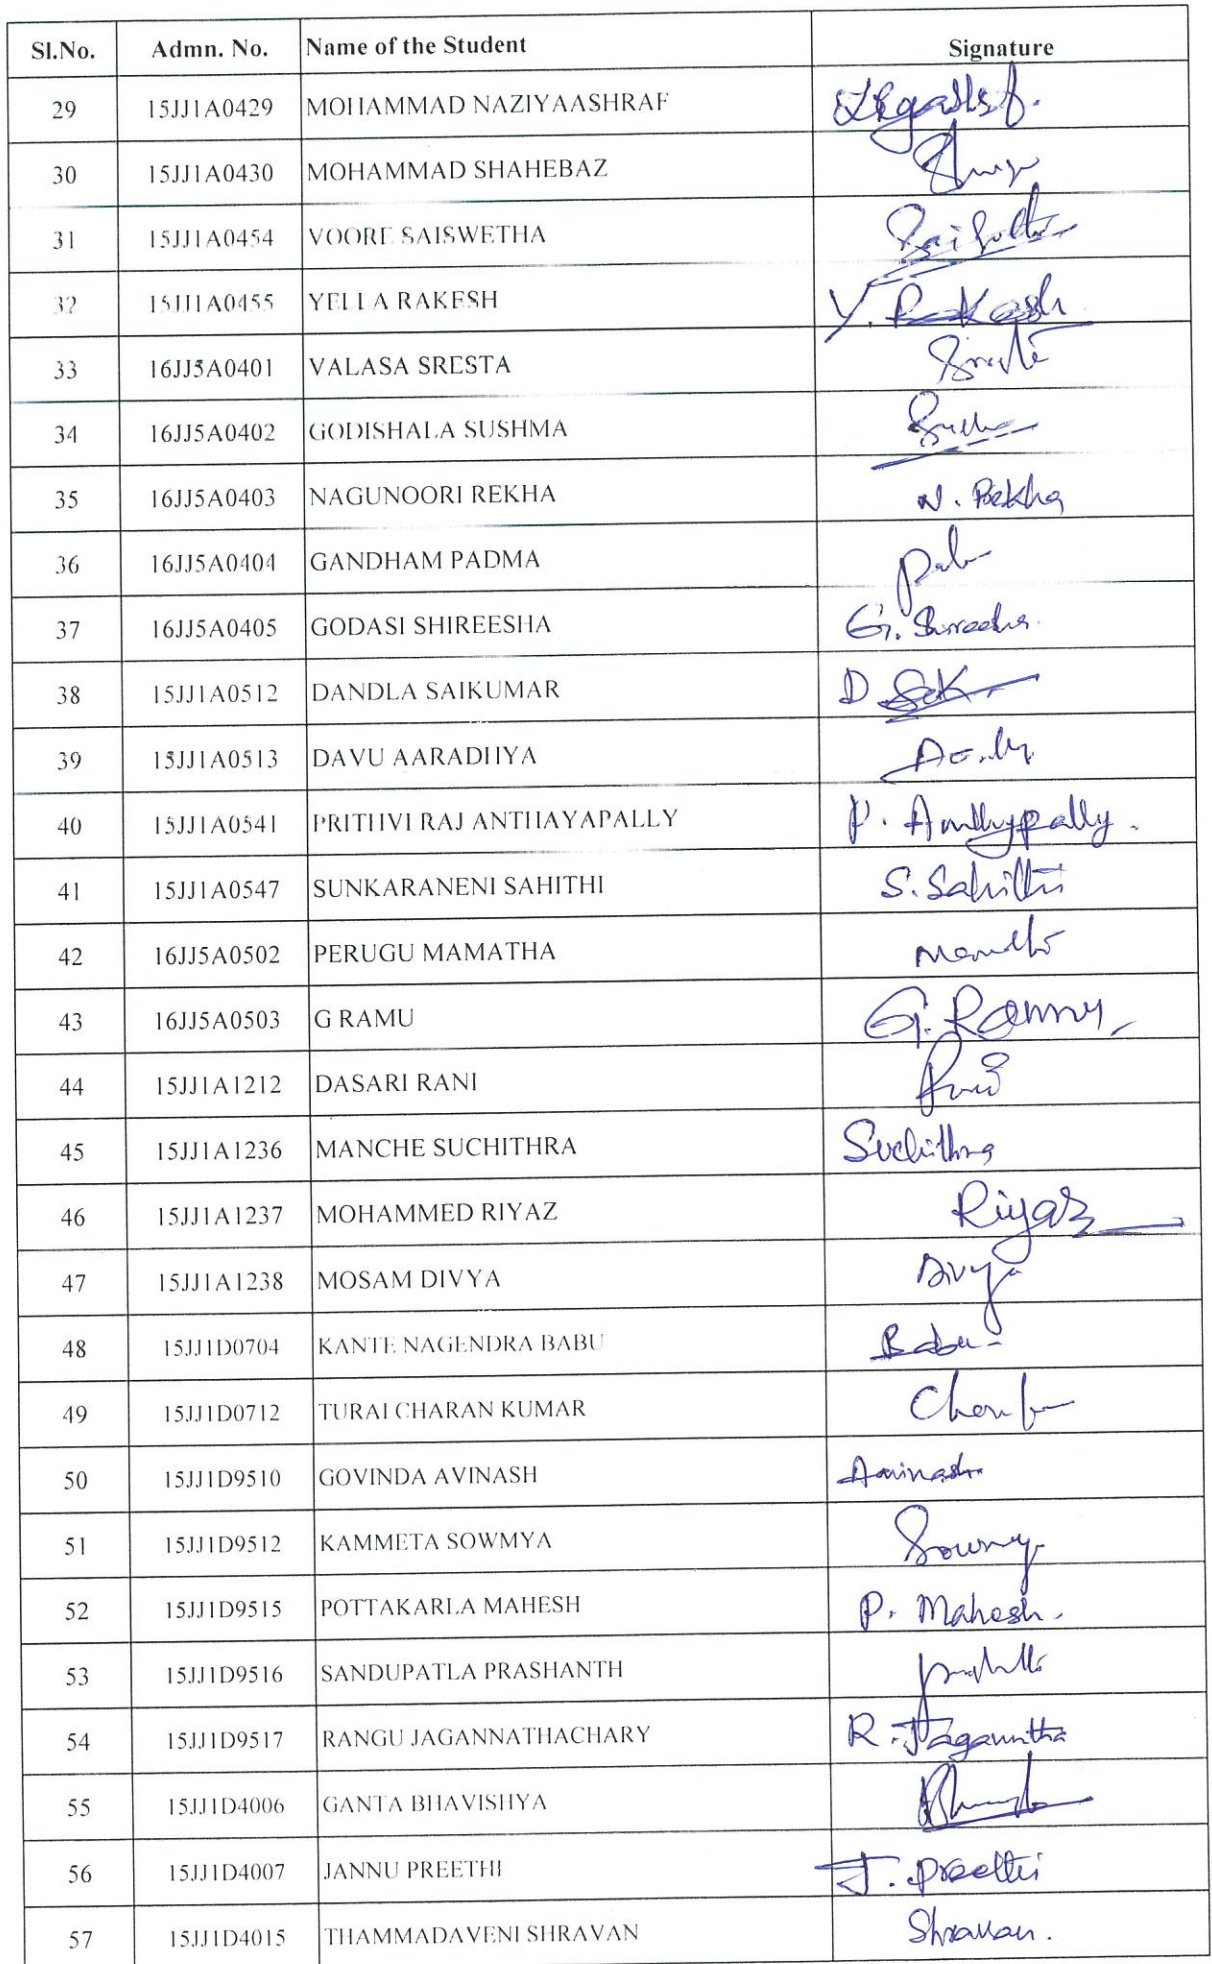 Sl.No. Admn. No. Name of the Student Signature
29 15JJ1A0429 MOHAMMAD NAZIYAASHRAF
30 15JJ1A0430 MOHAMMAD SHAHEBAZ
31 15JJ1A0454 VOORE SAISWETHA
32 15JJ1A0455 YELLA RAKESH Y. Rakesh
33 16JJ5A0401 VALASA SRESTA
34 16JJ5A0402 GODISHALA SUSHMA
35 16JJ5A0403 NAGUNOORI REKHA N. Rekha
36 16JJ5A0404 GANDHAM PADMA
37 16JJ5A0405 GODASI SHIREESHA G. Shireesha
38 15JJ1A0512 DANDLA SAIKUMAR D
39 15JJ1A0513 DAVU AARADHYA
40 15JJ1A0541 PRITHVI RAJ ANTHAYAPALLY P.
41 15JJ1A0547 SUNKARANENI SAHITHI S. Sahithi
42 16JJ5A0502 PERUGU MAMATHA
43 16JJ5A0503 G RAMU G. Ramu
44 15JJ1A1212 DASARI RANI
45 15JJ1A1236 MANCHE SUCHITHRA Suchithra
46 15JJ1A1237 MOHAMMED RIYAZ Riyaz
47 15JJ1A1238 MOSAM DIVYA Divya
48 15JJ1D0704 KANTE NAGENDRA BABU Babu
49 15JJ1D0712 TURAI CHARAN KUMAR
50 15JJ1D9510 GOVINDA AVINASH Avinash
51 15JJ1D9512 KAMMETA SOWMYA Sowmya
52 15JJ1D9515 POTTAKARLA MAHESH P. Mahesh.
53 15JJ1D9516 SANDUPATLA PRASHANTH
54 15JJ1D9517 RANGU JAGANNATHACHARY R. Jagannatha
55 15JJ1D4006 GANTA BHAVISHYA
56 15JJ1D4007 JANNU PREETHI J. Preethi
57 15JJ1D4015 THAMMADAVENI SHRAVAN Shravan.